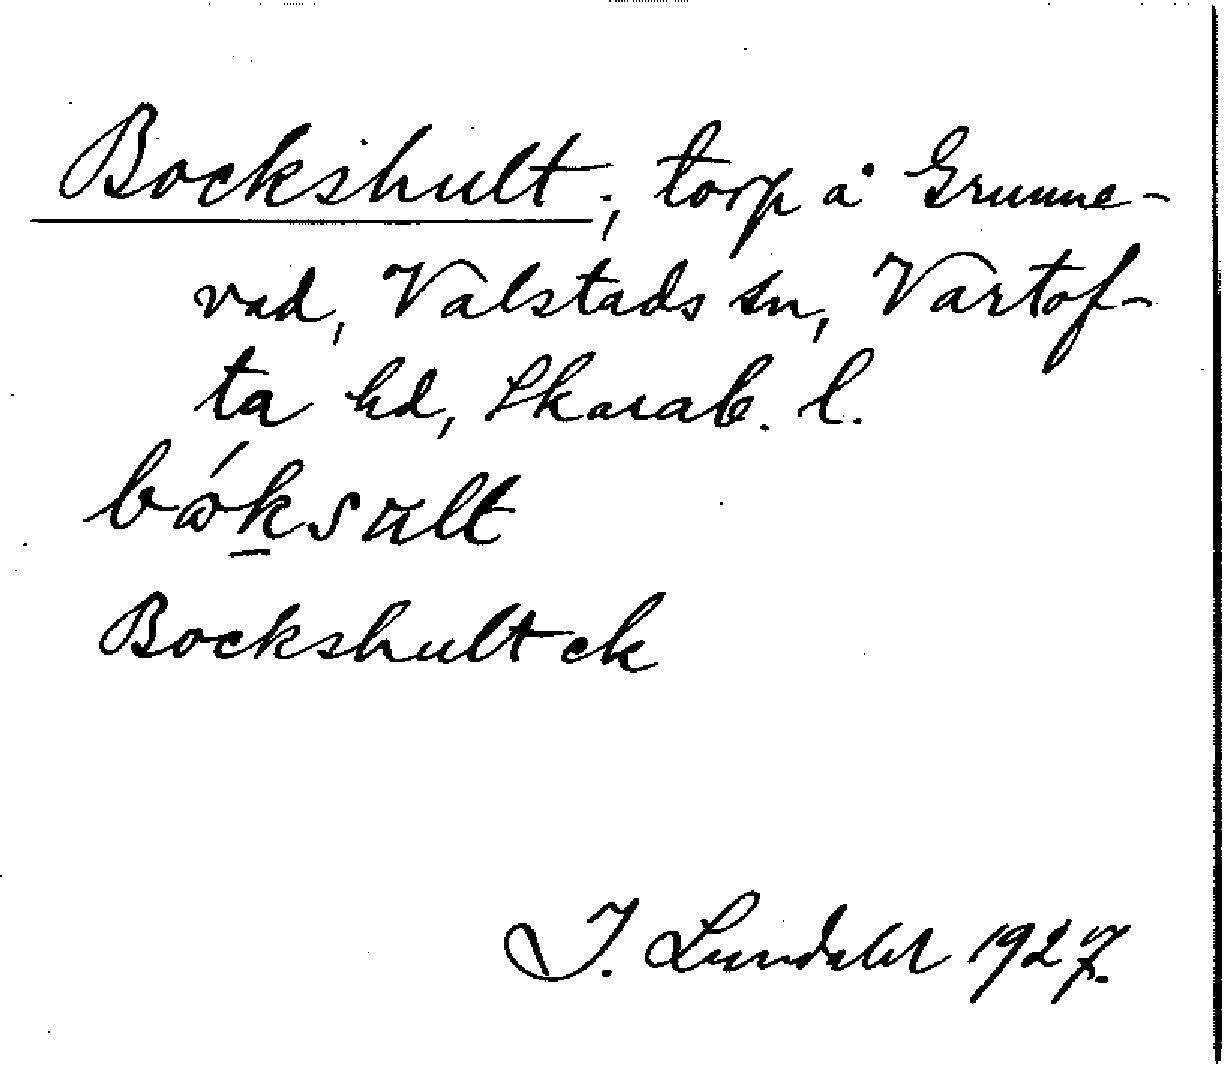 Bockshult; torp å Grunne-
vad, Valstads sn, Vartof-
ta hd, Skarab. l.
bɷ́ksult
Bockshult ek
I. Lundahl 1927.